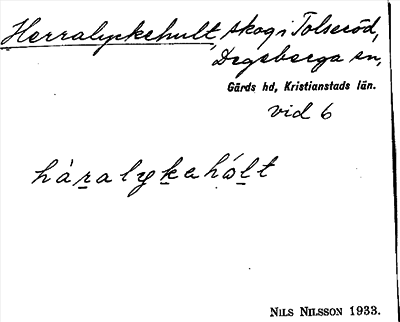 Herralyckehult, skog i Tolseröd,
Degeberga sn,
Gärds hd, Kristianstads län.
vid 6
hàralykehólt
NILS NILSSON 1933.